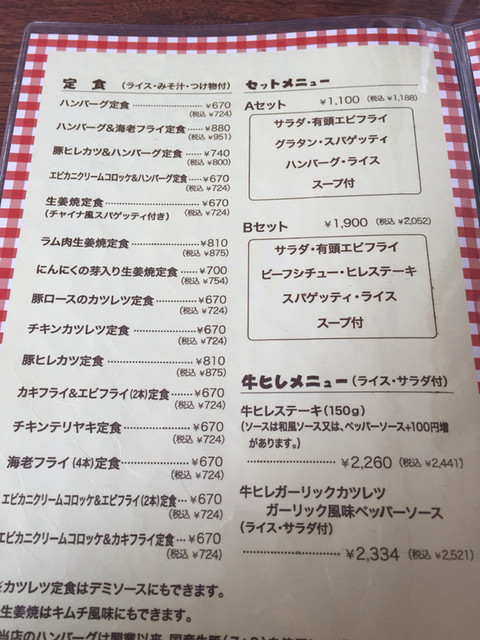 定 食 (ライス・みそ汁・つけ物付)
ハンバーグ定食 ¥670
(税込 ¥724)
ハンバーグ&海老フライ定食 ¥880
(税込 ¥951)
豚ヒレカツ&ハンバーグ定食 ¥740
(税込 ¥800)
エビカニクリームコロッケ&ハンバーグ定食 ¥670
(税込 ¥724)
生姜焼定食 ¥670
(チャイナ風スパゲッティ付き) (税込 ¥724)
ラム肉生姜焼定食 ¥810
(税込 ¥875)
にんにくの芽入り生姜焼定食 ¥700
(税込 ¥754)
豚ロースのカツレツ定食 ¥670
(税込 ¥724)
チキンカツレツ定食 ¥670
(税込 ¥724)
豚ヒレカツ定食 ¥810
(税込 ¥875)
カキフライ&エビフライ(2本)定食 ¥670
(税込 ¥724)
チキンテリヤキ定食 ¥670
(税込 ¥724)
海老フライ(4本)定食 ¥670
(税込 ¥724)
エビカニクリームコロッケ&エビフライ(2本)定食 ¥670
(税込 ¥724)
エビカニクリームコロッケ&カキフライ定食 ¥670
(税込 ¥724)
カツレツ定食はデミソースにもできます。
生姜焼はキムチ風味にもできます。
当店のハンバーグは開業以来、国産牛豚
セットメニュー
Aセット ¥1,100 (税込 ¥1,188)
サラダ・有頭エビフライ
グラタン・スパゲッティ
ハンバーグ・ライス
スープ付
Bセット ¥1,900 (税込 ¥2,052)
サラダ・有頭エビフライ
ビーフシチュー・ヒレステーキ
スパゲッティ・ライス
スープ付
牛ヒレメニュー (ライス・サラダ付)
牛ヒレステーキ(150g)
(ソースは和風ソース又は、ペッパーソース+100円増
があります。)
¥2,260 (税込 ¥2,441)
牛ヒレガーリックカツレツ
ガーリック風味ペッパーソース
(ライス・サラダ付)
¥2,334 (税込 ¥2,521)